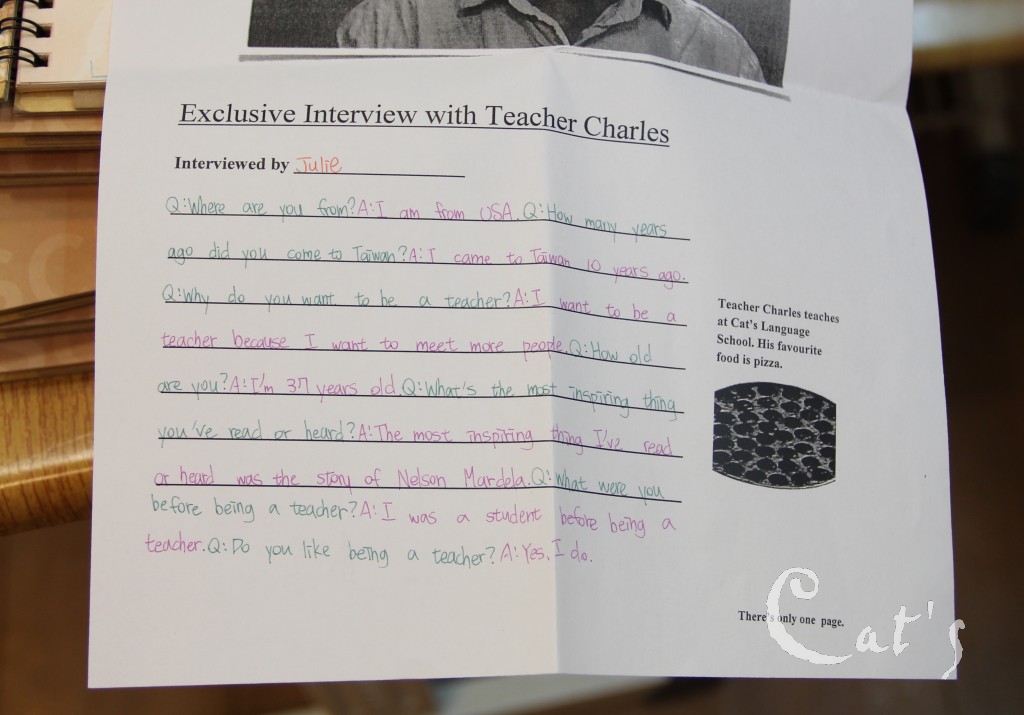 Exclusive Interview with Teacher Charles
Interviewed by Julie
Q:Where are you from?A:I am from USA.Q:How many years
ago did you come to Taiwan?A:I came to Taiwan 10 years ago.
Q:Why do you want to be a teacher?A:I want to be a
teacher because I want to meet more people.Q:How old
are you?A:I'm 37 years old.Q:What's the most inspiring thing
you've read or heard?A:The most inspiring thing I've read
or heard was the story of Nelson Mardela.Q:What were you
before being a teacher?A:I was a student before being a
teacher.Q:Do you like being a teacher?A:Yes, I do.
Teacher Charles teaches
at Cat's Language
School. His favourite
food is pizza.
There's only one page.
Cat's